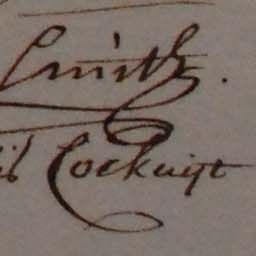 Smith.
Cockuijt